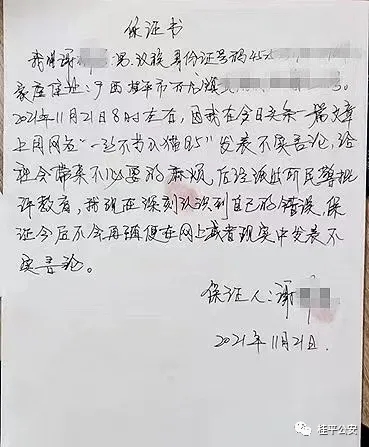 保证书
我谢 男.汉族 身份证号码45
家庭住址:广西桂平市 镇
2021年11月21日8时左右,因我在今日头条一篇文章
上用网名“一丝不 ”发表不实言论,给
社会带来不必要的麻烦,后经派出所民警批
评教育,我现在深刻认识到自己的错误,保
证今后不会再随便在网上或者现实中发表不
实言论。
保证人:谢
2021年11月21日.
桂平公安